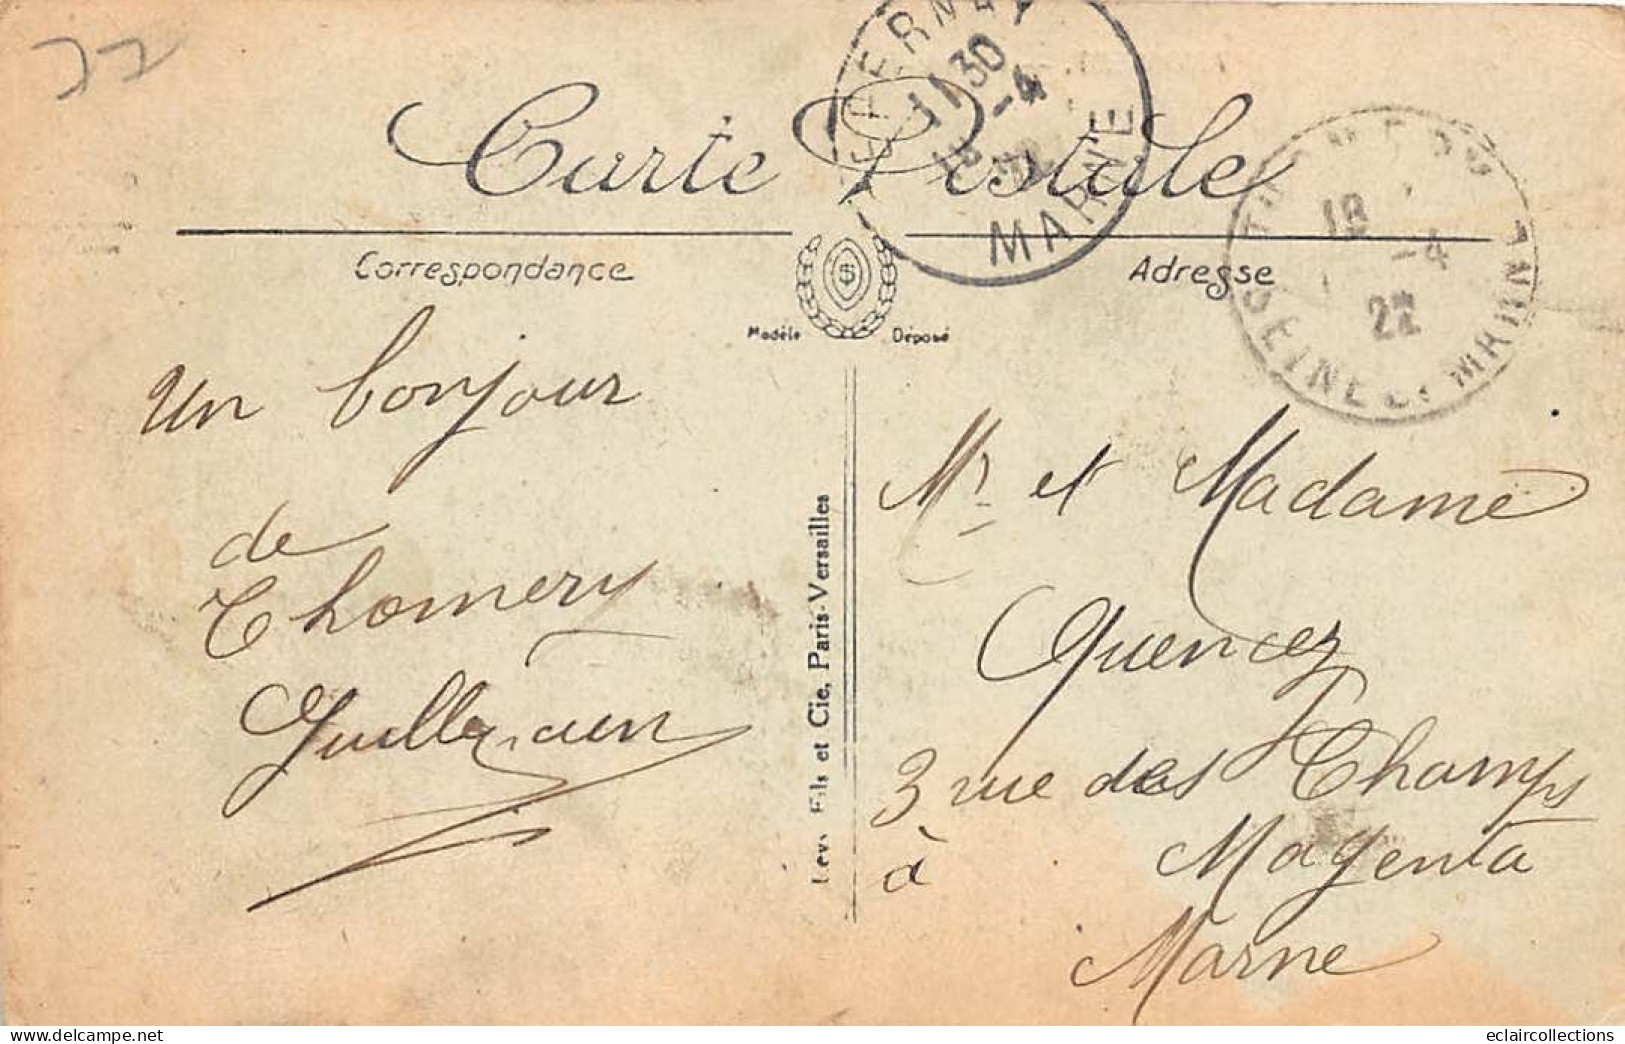 77
Carte Postale
EPERNAY
11 30
-4
MARNE
18
-4
22
SEINE ET MARNE
Correspondance
Adresse
Modèle Déposé
Un bonjour
de
Thomery
Levy Fils et Cie, Paris-Versailles
Mr et Madame
Quencez
3 rue des Champs
à Magenta
Marne
eclaircollections